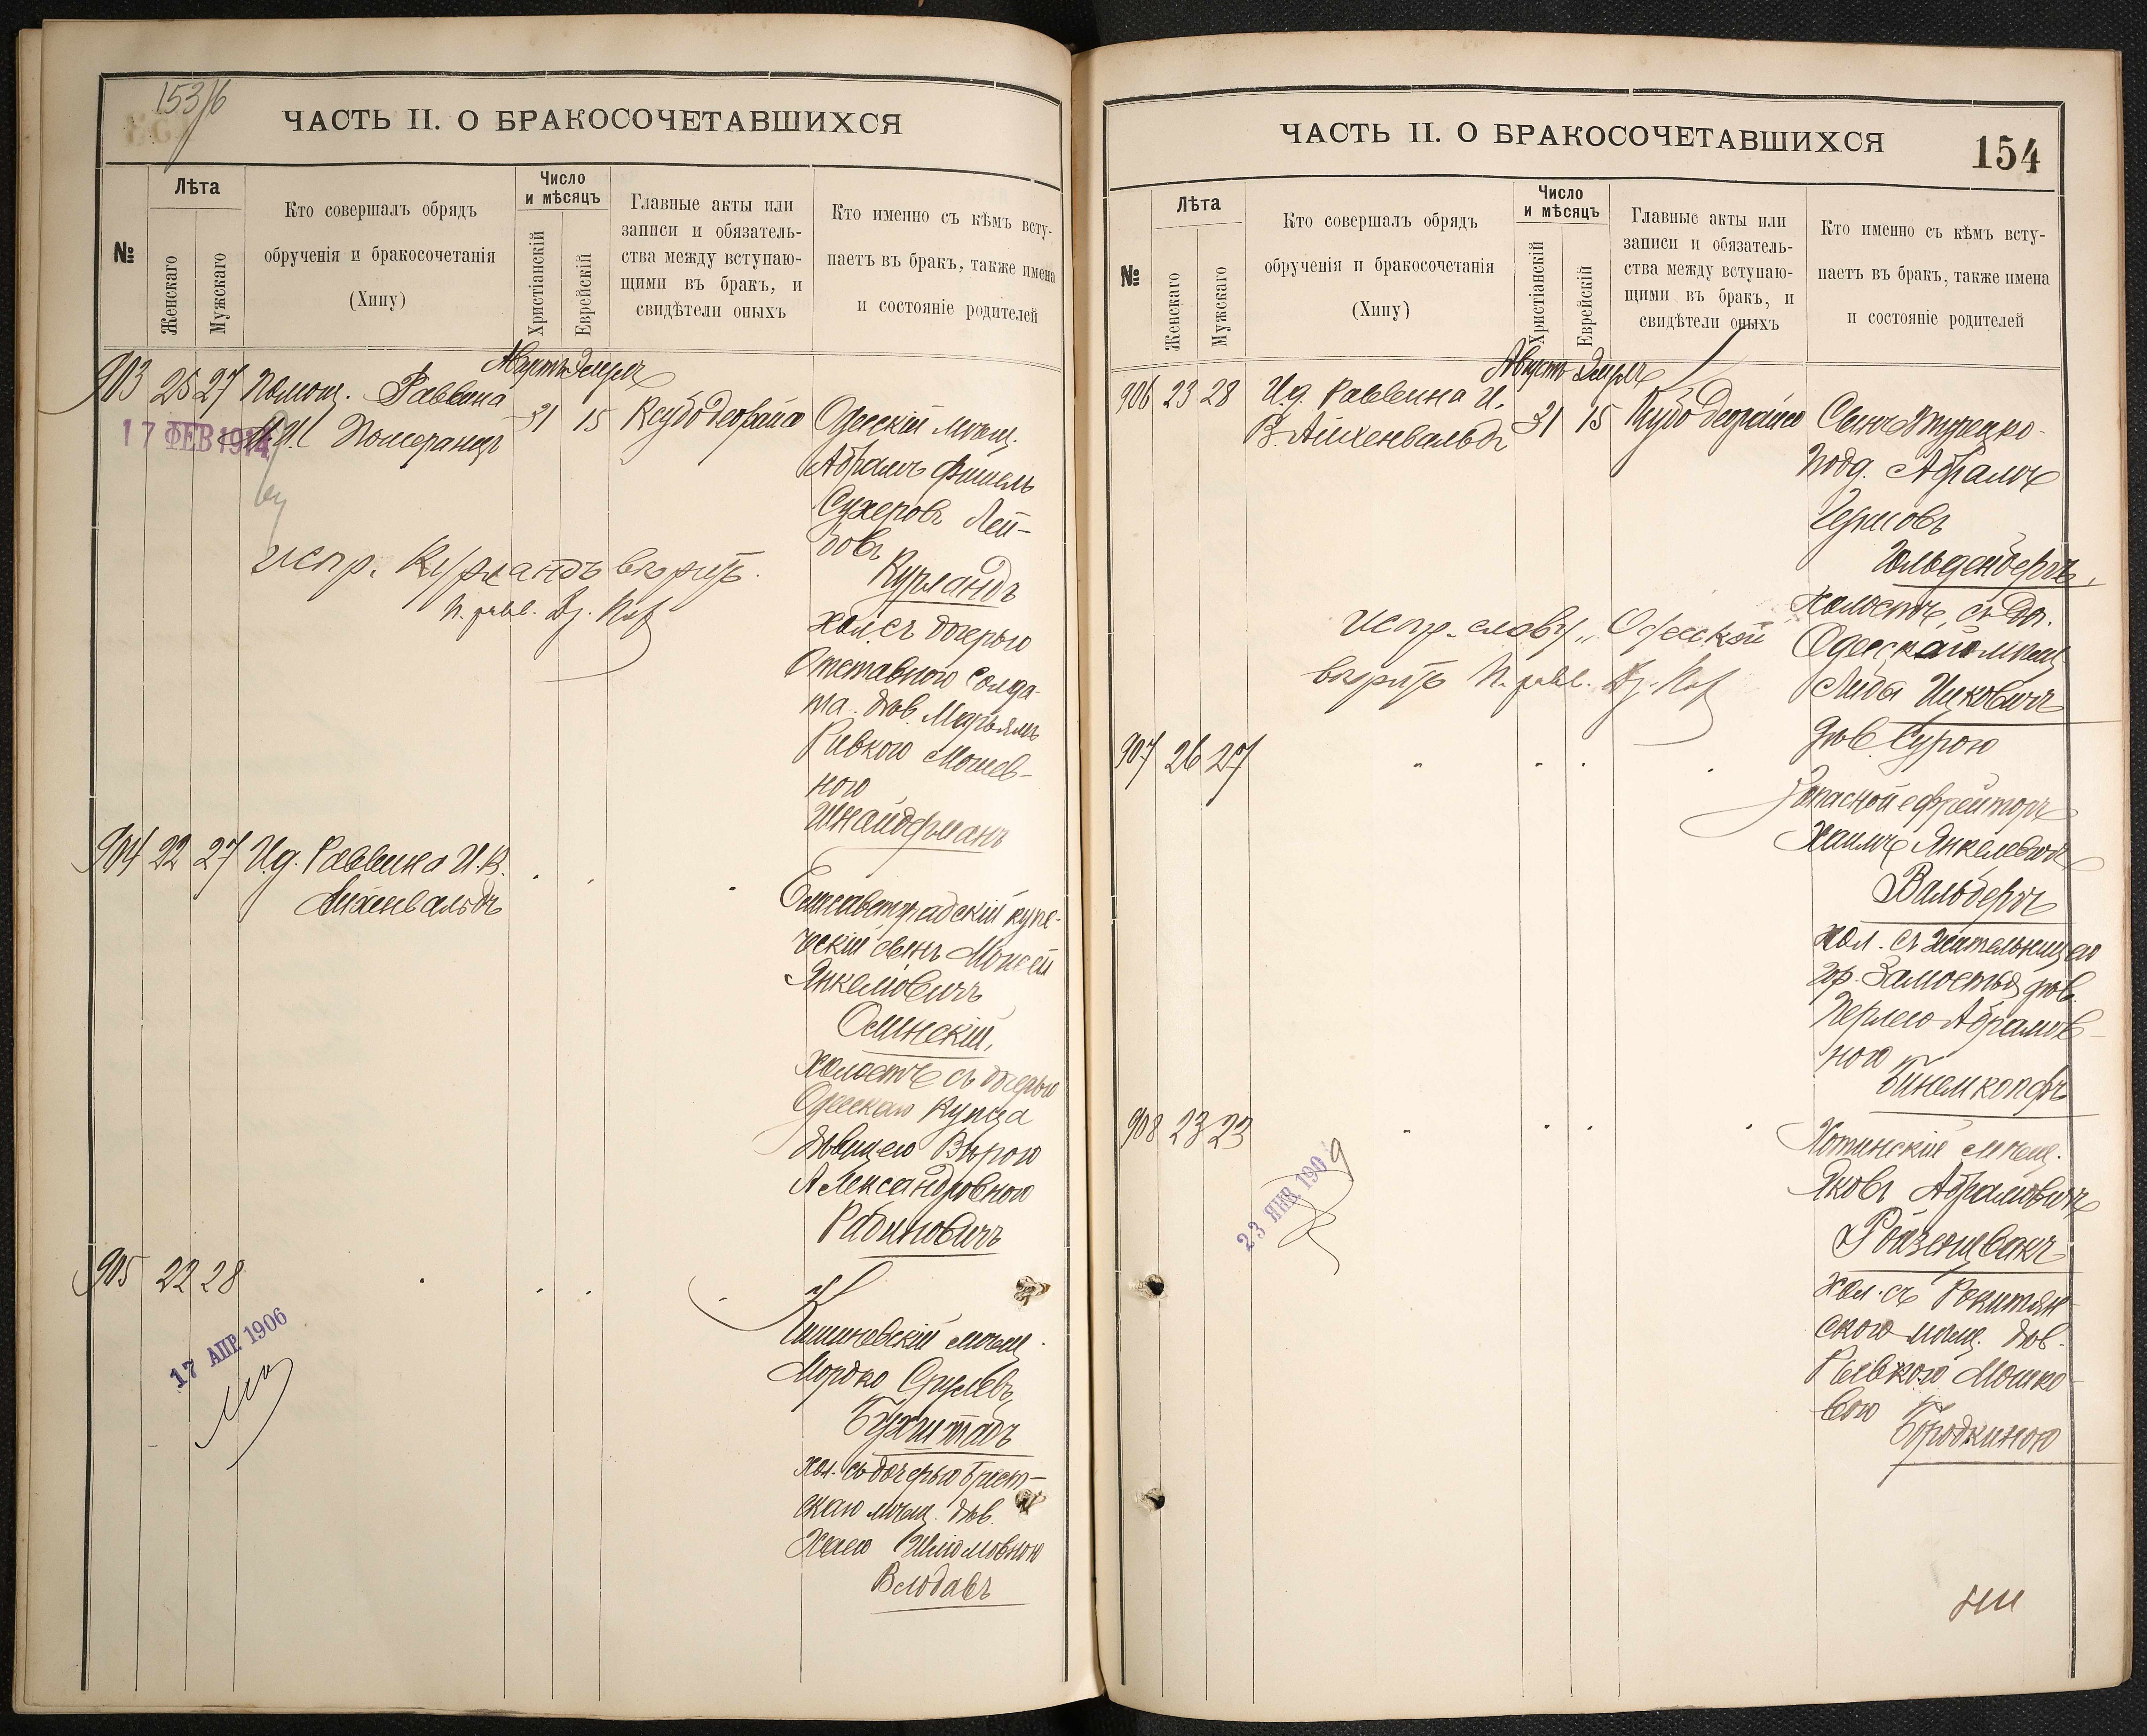 153/6
ЧАСТЬ II. О БРАКОСОЧЕТАВШИХСЯ
№
Лѣта
Женскаго
Мужскаго
Кто совершалъ обрядъ
обрученія и бракосочетанія
(Хипу)
Число
и мѣсяцъ
Христіанскій
Еврейскій
Главные акты или
записи и обязатель-
ства между вступаю-
щими въ бракъ, и
свидѣтели оныхъ
Кто именно съ кѣмъ всту-
паетъ въ бракъ, также имена
и состояніе родителей
Августъ Элулъ
903 25 27 Помощ. Раввина
Померанцъ
31 15
17 ФЕВ 1914
Одесскій мѣщ.
Абрамъ Фишель
Сухеровъ Лей-
бовъ
Курландъ
хол съ дочерью
Отставного солда-
та дѣв. Марьямъ
Ривкою Мошков-
ною
Шнайдерманъ
испр. Курландъ вѣрить.
904 22 27 И.д. Раввина И.В.
Айхенвальдъ
Елисаветградскій купе-
ческій сынъ Моисей
Янкелiовичъ
Осинскій,
холостъ съ дочерью
Одесскаго Купца
дѣвицею Вѣрою
Александровною
Рабиновичъ
905 22 28
17 АПР 1906
Кишиневскій мѣщ.
Мордко Срулевъ
Бухштабъ
хол. съ дочерью Брест-
скаго мѣщ. дѣв.
Хаею Шліомовною
Влодавъ
ЧАСТЬ II. О БРАКОСОЧЕТАВШИХСЯ
154
№
Лѣта
Женскаго
Мужскаго
Кто совершалъ обрядъ
обрученія и бракосочетанія
(Хипу)
Число
и мѣсяцъ
Христіанскій
Еврейскій
Главные акты или
записи и обязатель-
ства между вступаю-
щими въ бракъ, и
свидѣтели оныхъ
Кто именно съ кѣмъ всту-
паетъ въ бракъ, также имена
и состояніе родителей
Августъ Элулъ
906 23 28 И.д. Раввина И.
В. Айхенвальдъ
31 15
Сынъ Турецко-
подд. Абрамъ
Гольденбергъ,
холостъ, съ доч.
Одесскаго мѣщ
Лейбы Ицковичъ
дѣв. Сурою
испр. слову "Одесской
вѣрить
907 26 27
Запасной ефрейторъ
Хаимъ Янкелевичъ
Вальбергъ
хол. съ жительницею
гр. Замостья дѣв.
Перлею Абрамов-
ною
Бинемкопфъ
908 23 23
23 ЯНВ 1909
Хотинскій мѣщ.
Яковъ Абрамовичъ
Ройзеншвакъ
хол. съ Рокитян-
скою мѣщ. дѣв.
Рывкою Мошко-
вою
Бродкиною